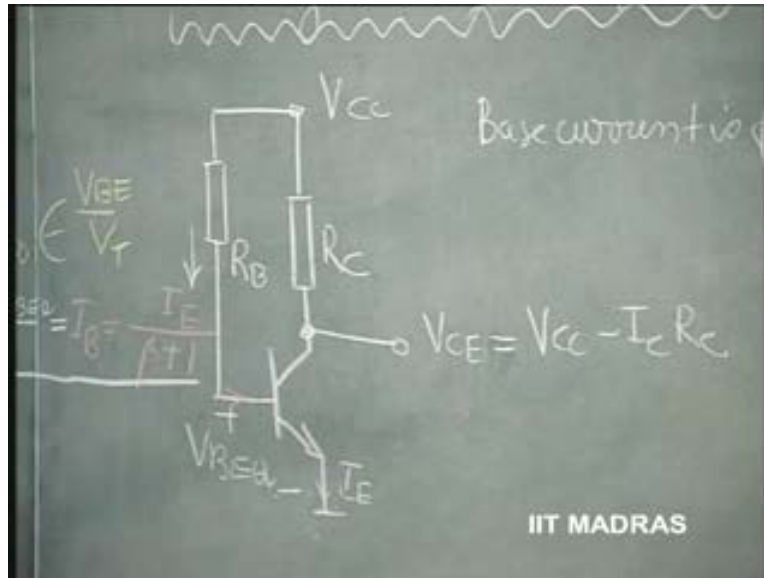 V_CC
Base current is
e V_BE/V_T
R_B
R_C
= I_B = I_E/(β+1)
V_CE = V_CC - I_C R_C
+
V_BEQ
-
I_E
IIT MADRAS